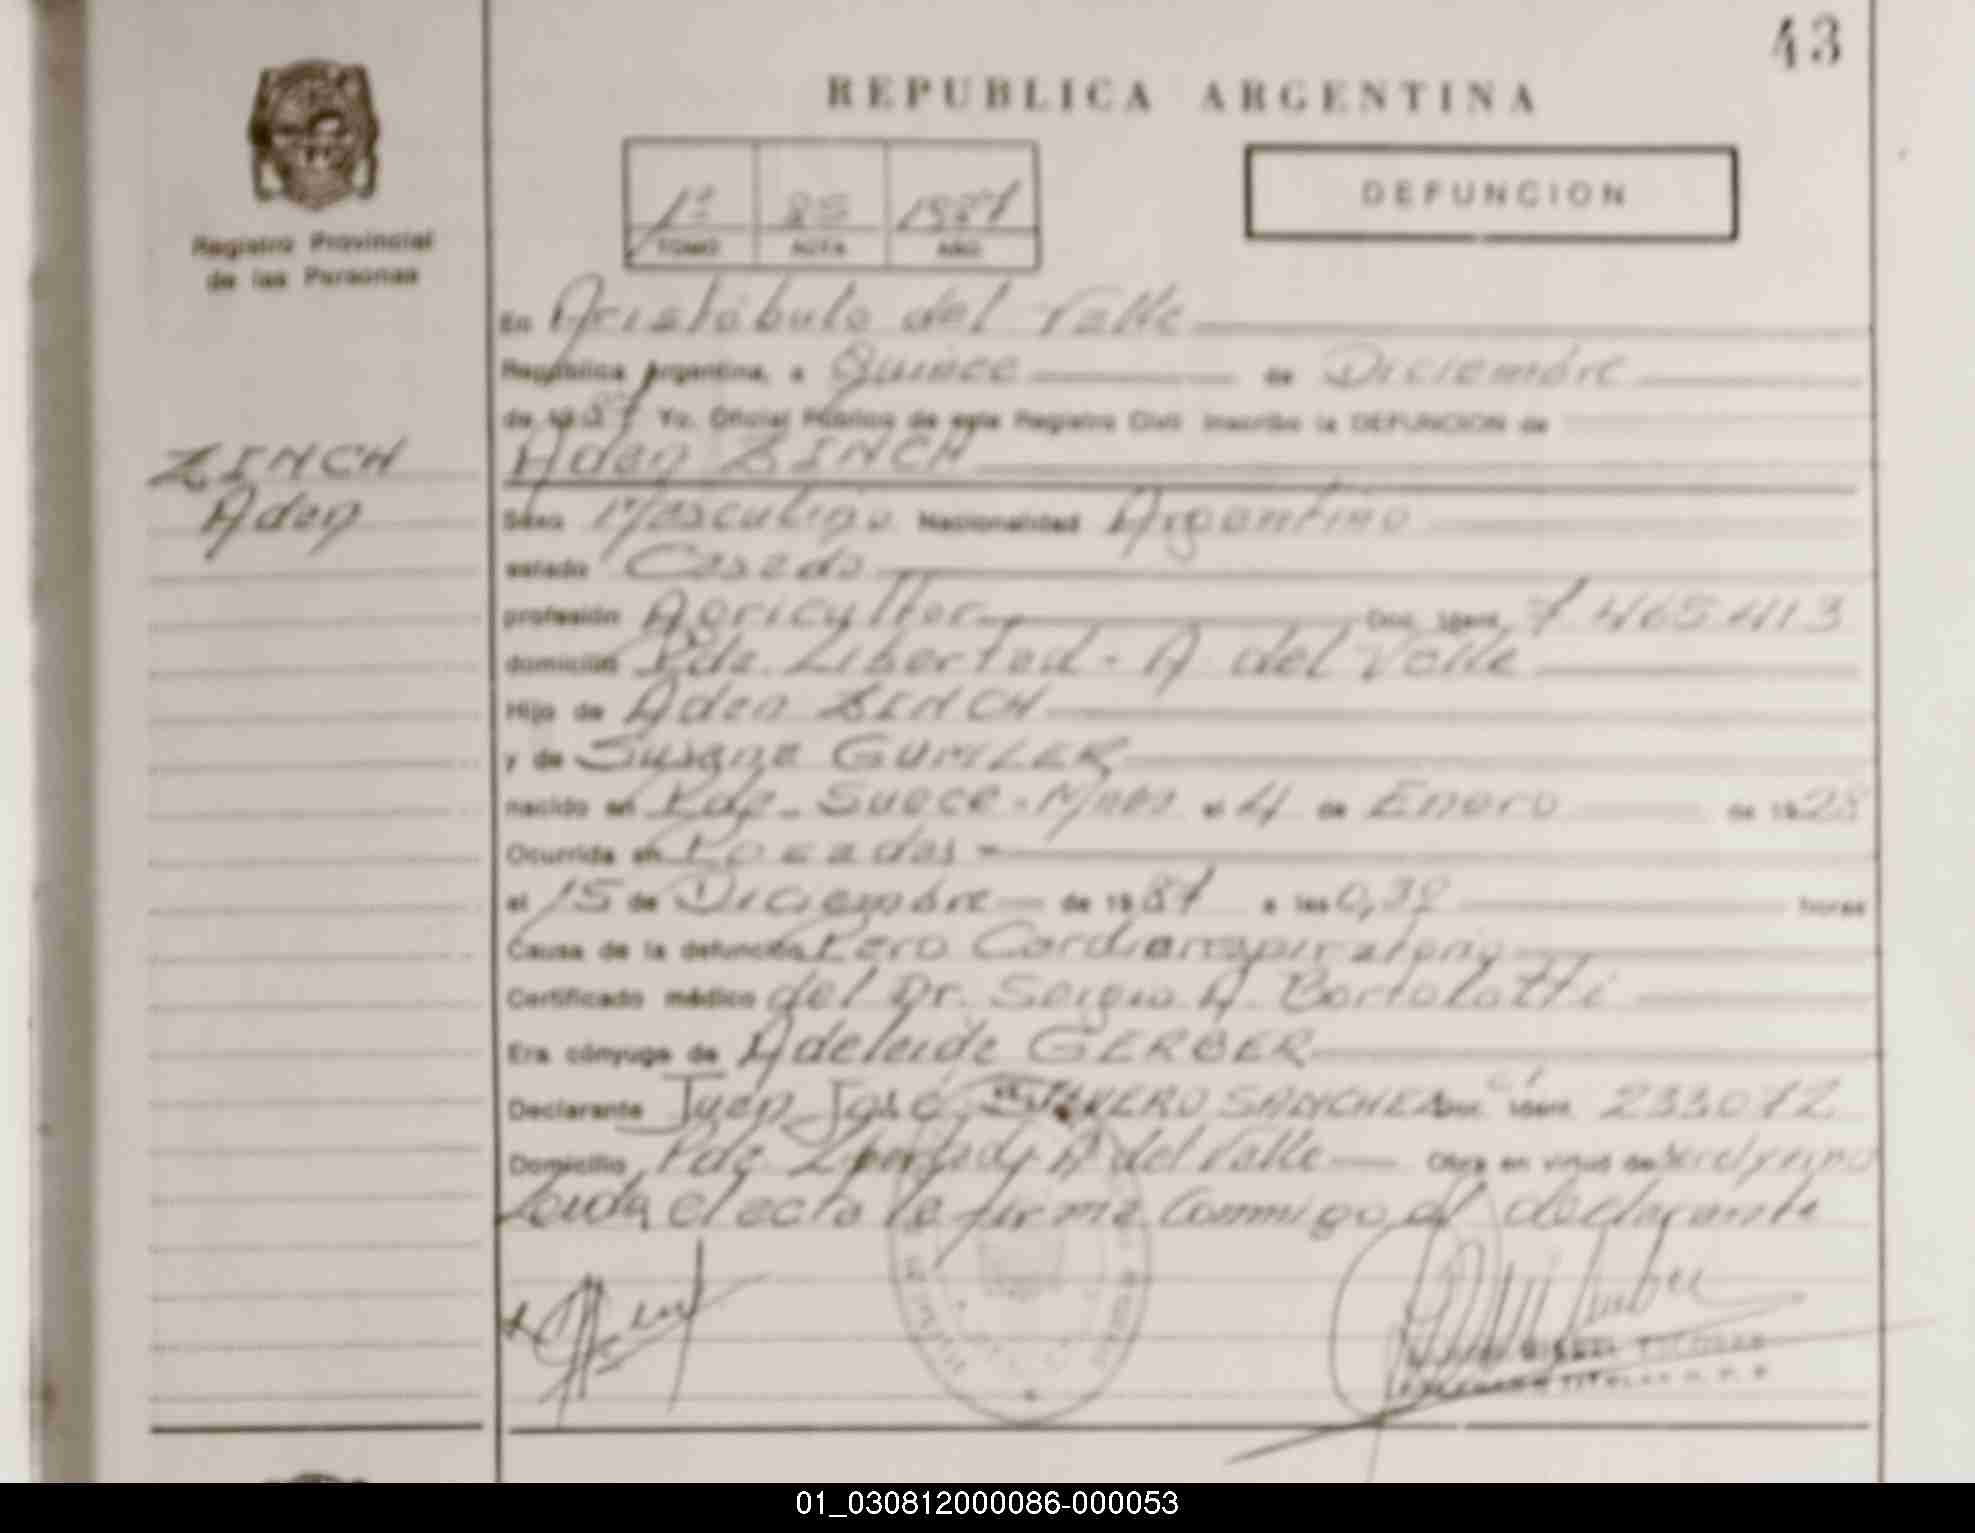 43
REPUBLICA ARGENTINA
1º 85 1987
TOMO ACTA AÑO
DEFUNCION
Registro Provincial
de las Personas
En Aristóbulo del Valle
República Argentina, a Quince de Diciembre
de 1987 Yo, Oficial Público de este Registro Civil inscribo la DEFUNCION de
ZINCH
Aden
Aden ZINCH
Sexo Masculino Nacionalidad Argentino
estado Casado
profesión Agricultor Doc. Ident. 7.465.413
domicilio Pde. Libertad - A. del Valle
Hijo de Aden ZINCH
y de Susana
nacido en Pde. Suece - Mnes el 4 de Enero de 1928
Ocurrida en Posadas -
el 15 de Diciembre de 1987 a las 0,30 horas
Causa de la defunción Paro Cardiorrespiratorio
Certificado médico del Dr. Sergio A. Bortolotti
Era cónyuge de Adelaide GERBER
Declarante Juan José SANCHEZ Doc. Ident. 233072
Domicilio Pde. Libertad A. del Valle Obra en virtud de
Leida el acta la firma conmigo el declarante
TITULAR
01_030812000086-000053